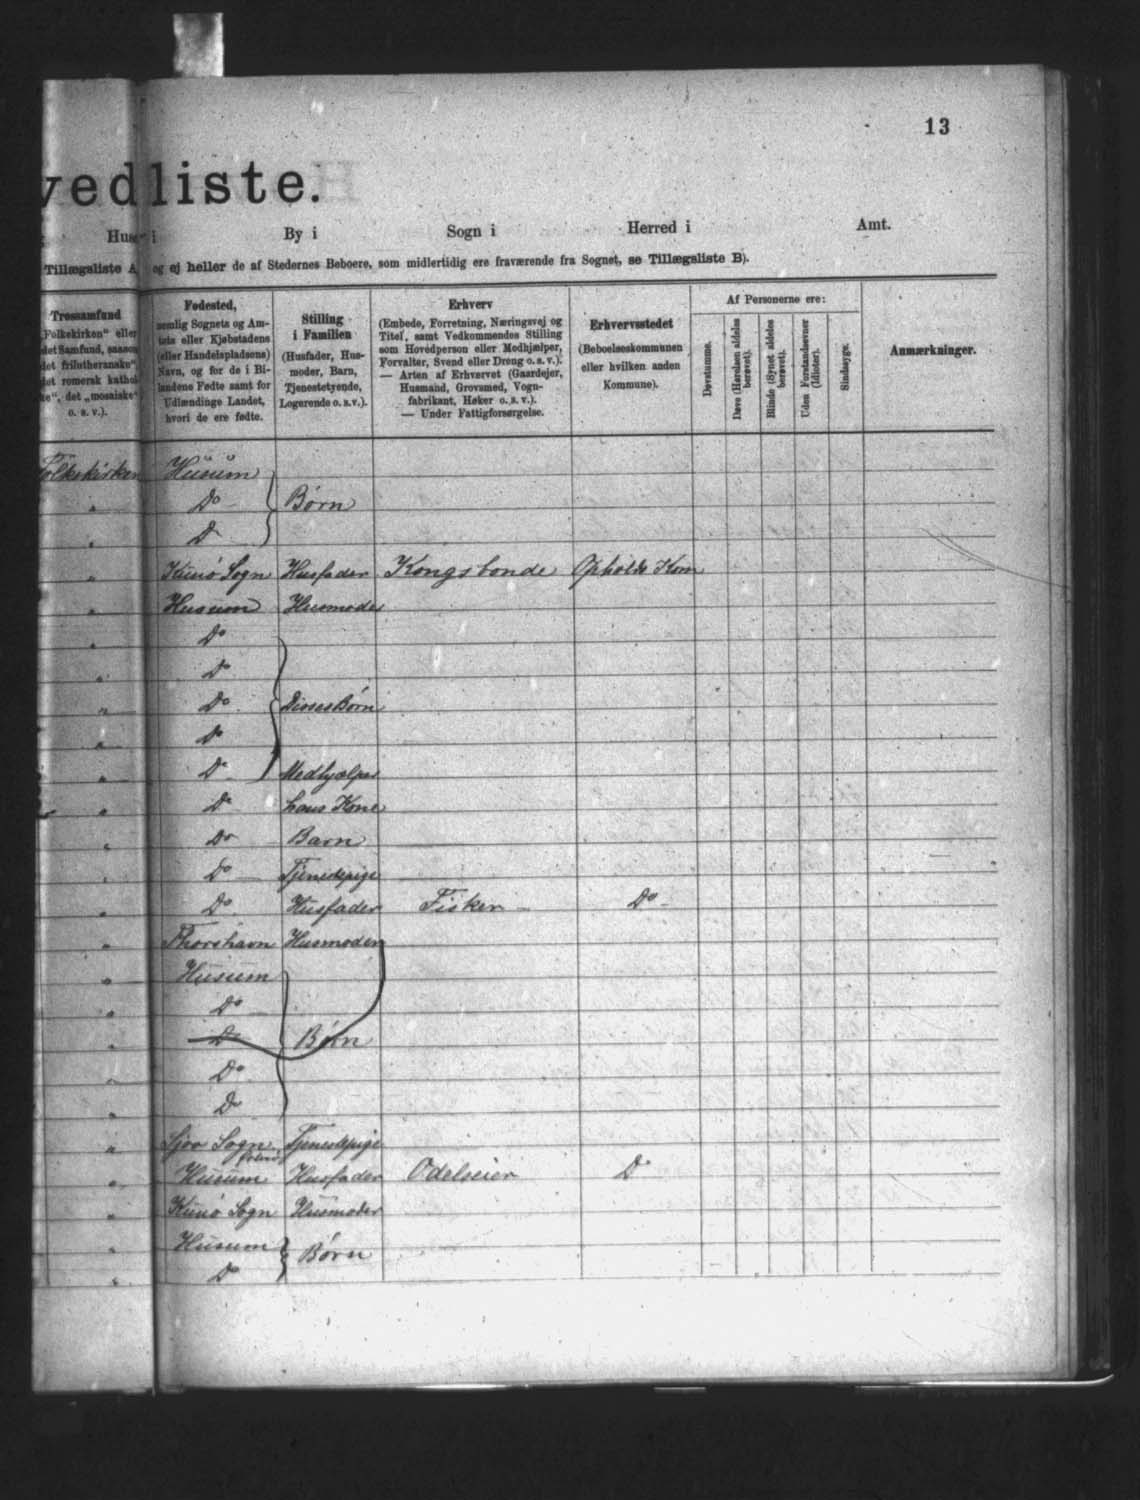 13
vedliste.
Huse i By i Sogn i Herred i Amt.
Tillægsliste A og ej heller de af Stedernes Beboere, som midlertidig ere fraværende fra Sognet, se Tillægsliste B).
Trossamfund
„Folkekirken" eller
det Samfund, saasom
det frilutheranske",
det romersk kathol-
ke", det „mosaiske"
o. s. v.).
Fødested,
nemlig Sognets og Am-
tets eller Kjøbstadens
(eller Handelspladsens)
Navn, og for de i Bi-
landene Fødte samt for
Udlændinge Landet,
hvori de ere fødte.
Stilling
i Familien
(Husfader, Hus-
moder, Barn,
Tjenestetyende,
Logerende o. s. v.).
Erhverv
(Embede, Forretning, Næringsvej og
Titel, samt Vedkommendes Stilling
som Hovedperson eller Medhjælper,
Forvalter, Svend eller Dreng o. s. v.).
— Arten af Erhvervet (Gaardejer,
Husmand, Grovsmed, Vogn-
fabrikant, Høker o. s. v.).
— Under Fattigforsørgelse.
Erhvervsstedet
(Beboelseskommunen
eller hvilken anden
Kommune).
Af Personerne ere:
Døvstumme.
Døve (Hørelsen aldeles
berøvet).
Blinde (Synet aldeles
berøvet).
Uden Forstandsevner
(Idioter).
Sindssyge.
Anmærkninger.
Folkekirken Husum
" Do Børn
" Do
" Kunø Sogn Husfader Kongsbonde Opholds Kom
" Husum Husmoder
" Do
" Do
" Do Disses Børn
" Do
" Do Medhjælper
" Do hans Kone
" Do Barn
" Do Tjenestepige
" Do Husfader Fisker Do
" Thorshavn Husmoder
" Husum
" Do
" Do Børn
" Do
" Do
" Sogn Tjenestepige
" Husum Husfader Odelseier Do
" Kunø Sogn Husmoder
" Husum Børn
" Do